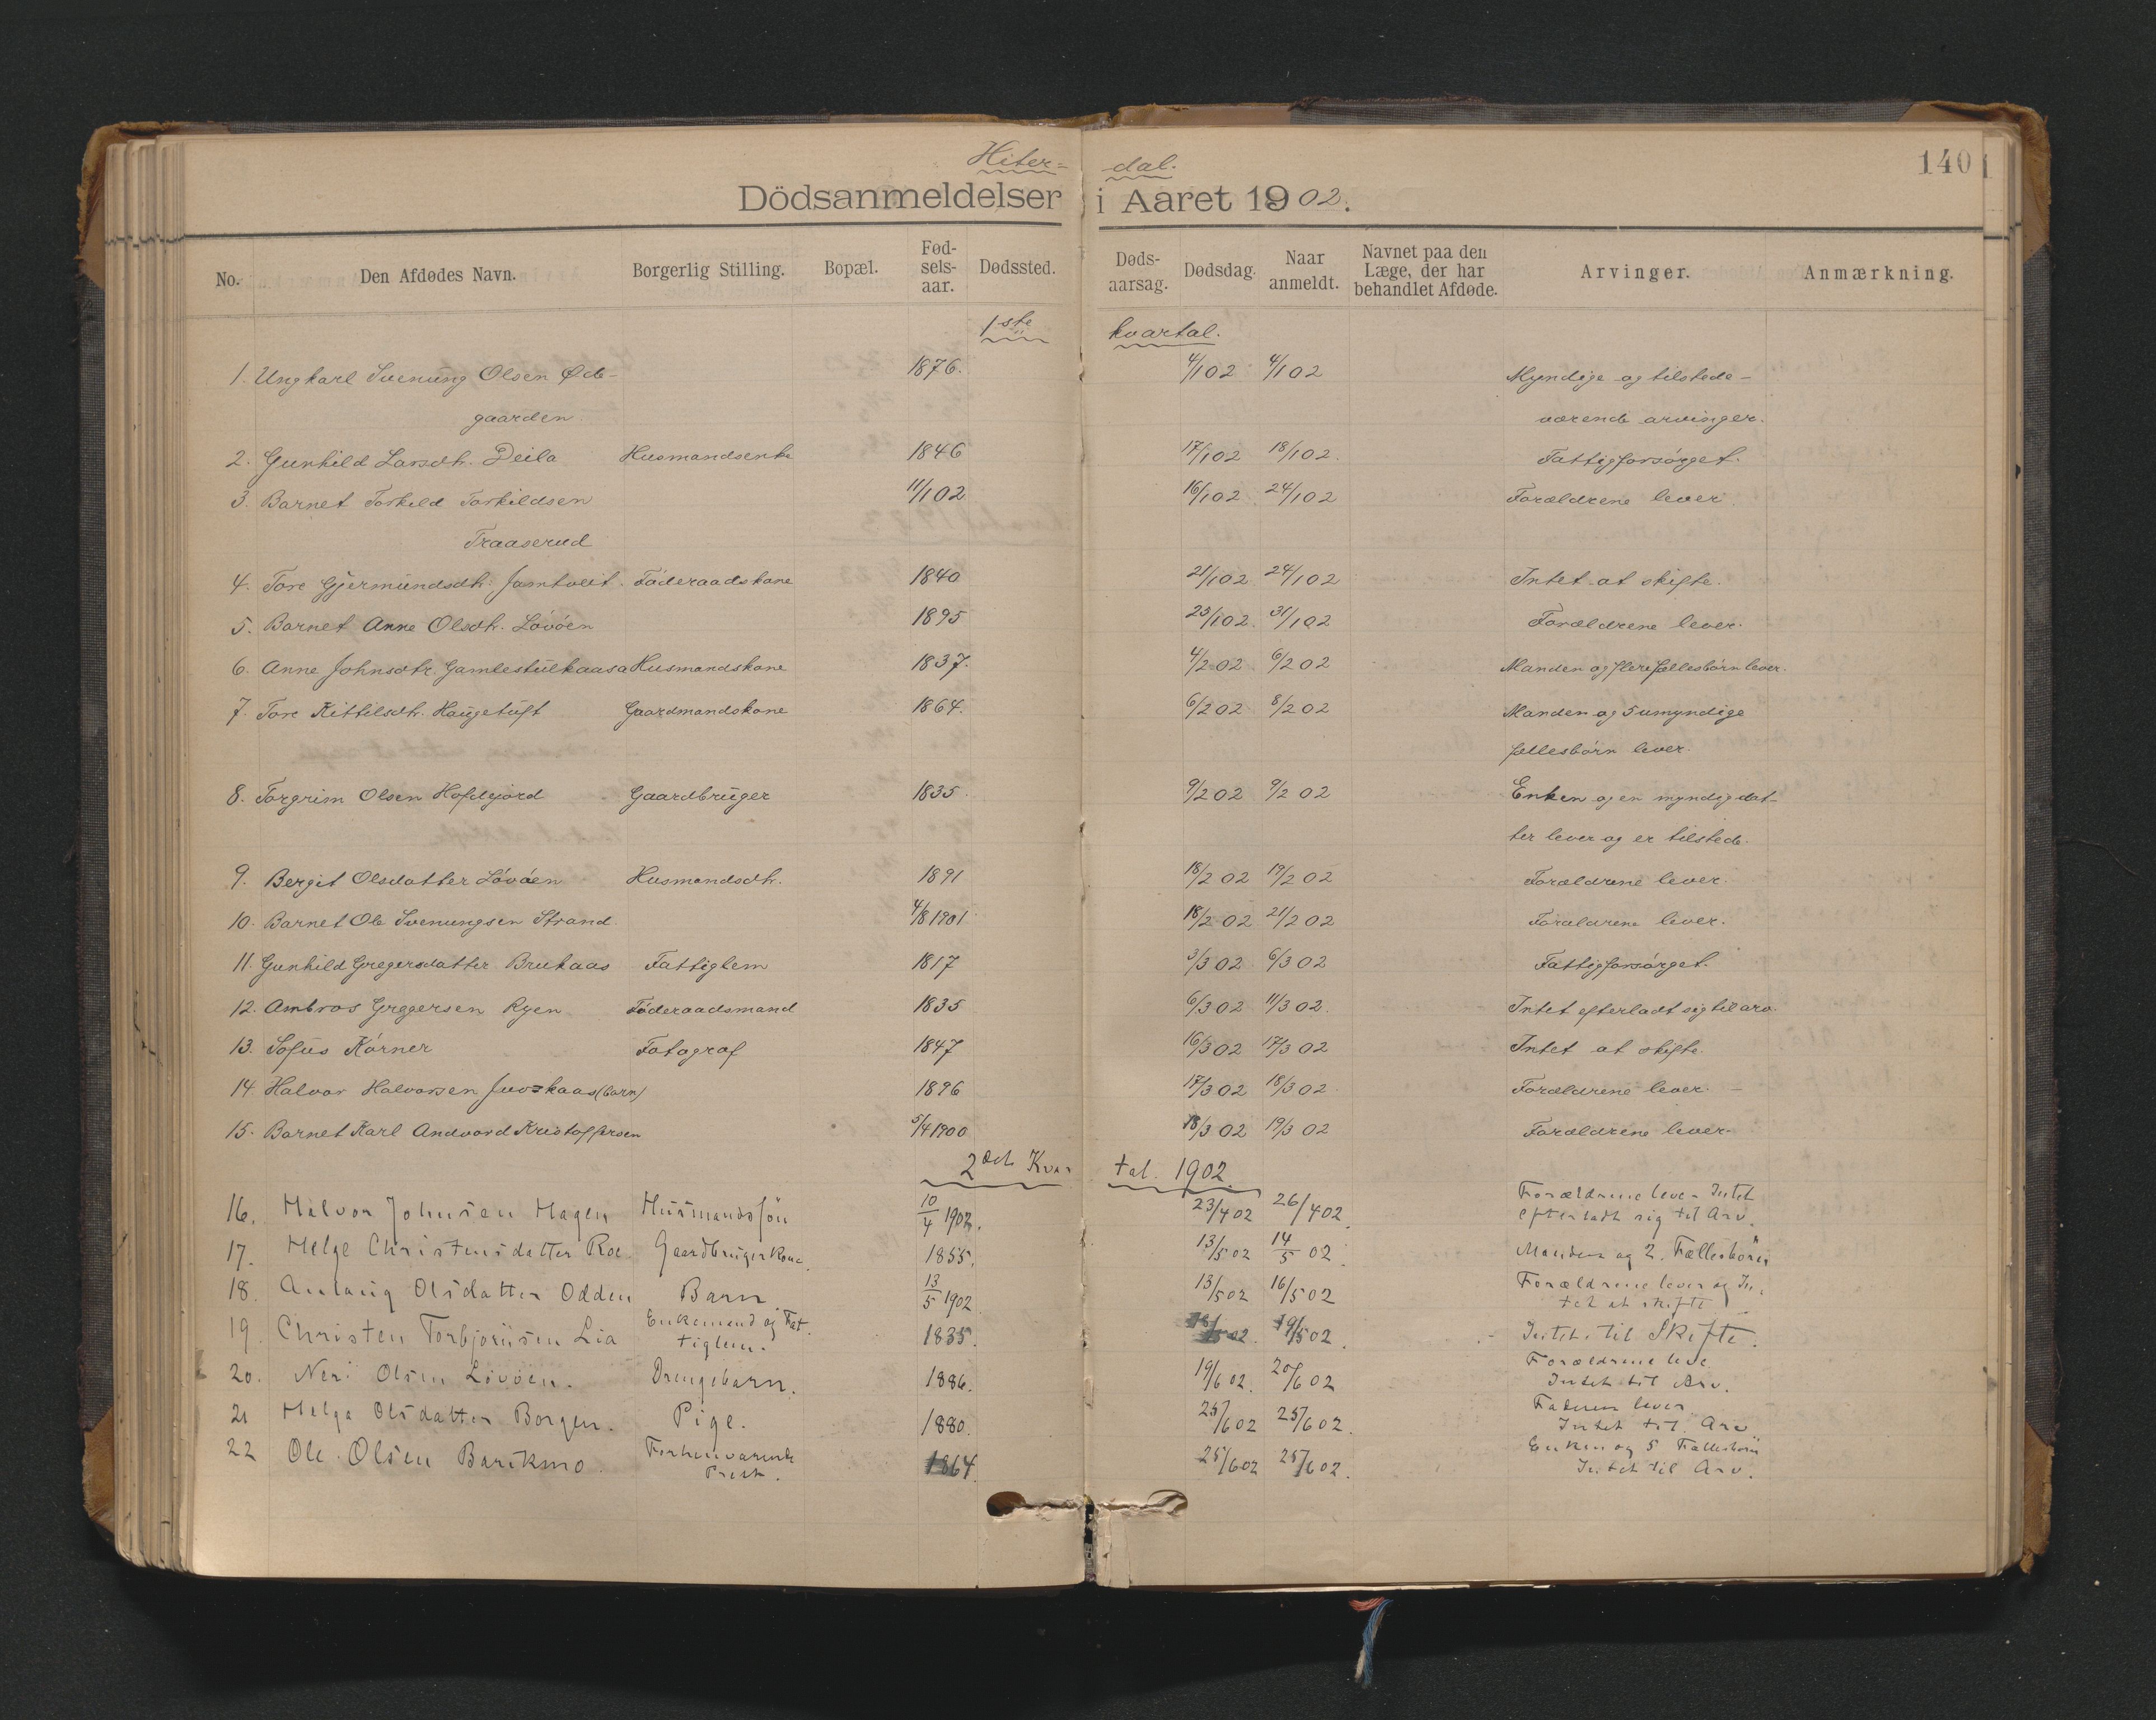 Hiter= dal.
140
Dödsanmeldelser i Aaret 1902.
No. Den Afdødes Navn. Borgerlig Stilling. Bopæl. Fødselsaar. Dødssted. Dødsaarsag. Dødsdag. Naar anmeldt. Navnet paa den Læge, der har behandlet Afdøde. Arvinger. Anmærkning.
1ste kvartal.
1. Ungkarl Svenung Olsen Øde- 1876. 4/1 02 4/1 02 Myndige og tilstede-
gaarden værende arvinger.
2. Gunhild Larsdh. Deila Husmandsenke 1846 17/1 02 18/1 02. Fattigforsörget.
3. Barnet Torkild Torkildsen 11/1 02 16/1 02 24/1 02 Forældrene lever.
Traaserud
4. Tore Gjermundsdh. Jamtveit. Föderaadskone 1840 21/1 02 24/1 02 Intet at skifte.
5. Barnet Anne Olsdh. Lövöen 1895 25/1 02. 31/1 02 Forældrene lever.
6. Anne Johnsdtr. Gamlestulkaasa Husmandskone 1837. 4/2 02 6/2 02 Manden og flere fællesbörn lever.
7. Tore Kittilsdh. Haugetuft Gaardmandskone 1864. 6/2 02 8/2 02 Manden og 5 umyndige
fællesbörn lever.
8. Torgrim Olsen Hofdejord Gaardbruger 1835. 9/2 02 9/2 02 Enken og en myndig dat-
ter lever og er tilstede.
9. Bergit Olsdatter Lövöen Husmandsdh. 1891 18/2 02 19/2 02 Forældrene lever.
10. Barnet Ole Svenungsen Strand 4/8 1901 18/2 02 21/2 02 Forældrene lever.
11. Gunhild Gregersdatter Brukaas Fattiglem 1817 3/3 02 6/3 02 Fattigforsörget.
12. Ambros Gregersen Ryen Föderaadsmand 1835 6/3 02 11/3 02. Intet efterladt sig til arv.
13. Sofus Körner Fotograf 1847 16/3 02 17/3 02 Intet at skifte.
14. Halvor Halvorsen Juvskaas (barn) 1896 17/3 02 18/3 02. Forældrene lever. -
15. Barnet Karl Andvord Kristoffersen 5/4 1900 18/3 02 19/3 02 Forældrene lever.
2det Kvartal. 1902.
16. Halvor Johnsen Hagen Husmandssön 10/4 1902. 23/4 02 26/4 02. Forældrene lever Intet
efterladt sig til Arv.
17. Helge Christensdatter Roe Gaardbrugerkone. 1855. 13/5 02 14/5 02. Manden og 2. Fællesbörn
18. Anlaug Olsdatter Odden Barn 13/5 1902 13/5 02 16/5 02 Forældrene lever og In-
tet at skifte
19 Christen Torbjornsen Lia Enkemand og Fat-
tiglem. 1835. 02. 19/5 02. Intet til Skifte.
20. Neri Olsen Lövöen. Drengebarn. 1886. 19/6 02. 20/6 02 Forældrene leve
Intet til Arv.
21 Helga Olsdatter Borgen. Pige. 1880. 25/6 02 25/6 02. Faderen lever
Intet til Arv
22 Ole Olsen Barikmo. Forhenværende
Prest. 1864. 25/6 02 25/6 02. Enken og 5 Fællesbörn
Intet til Arv.